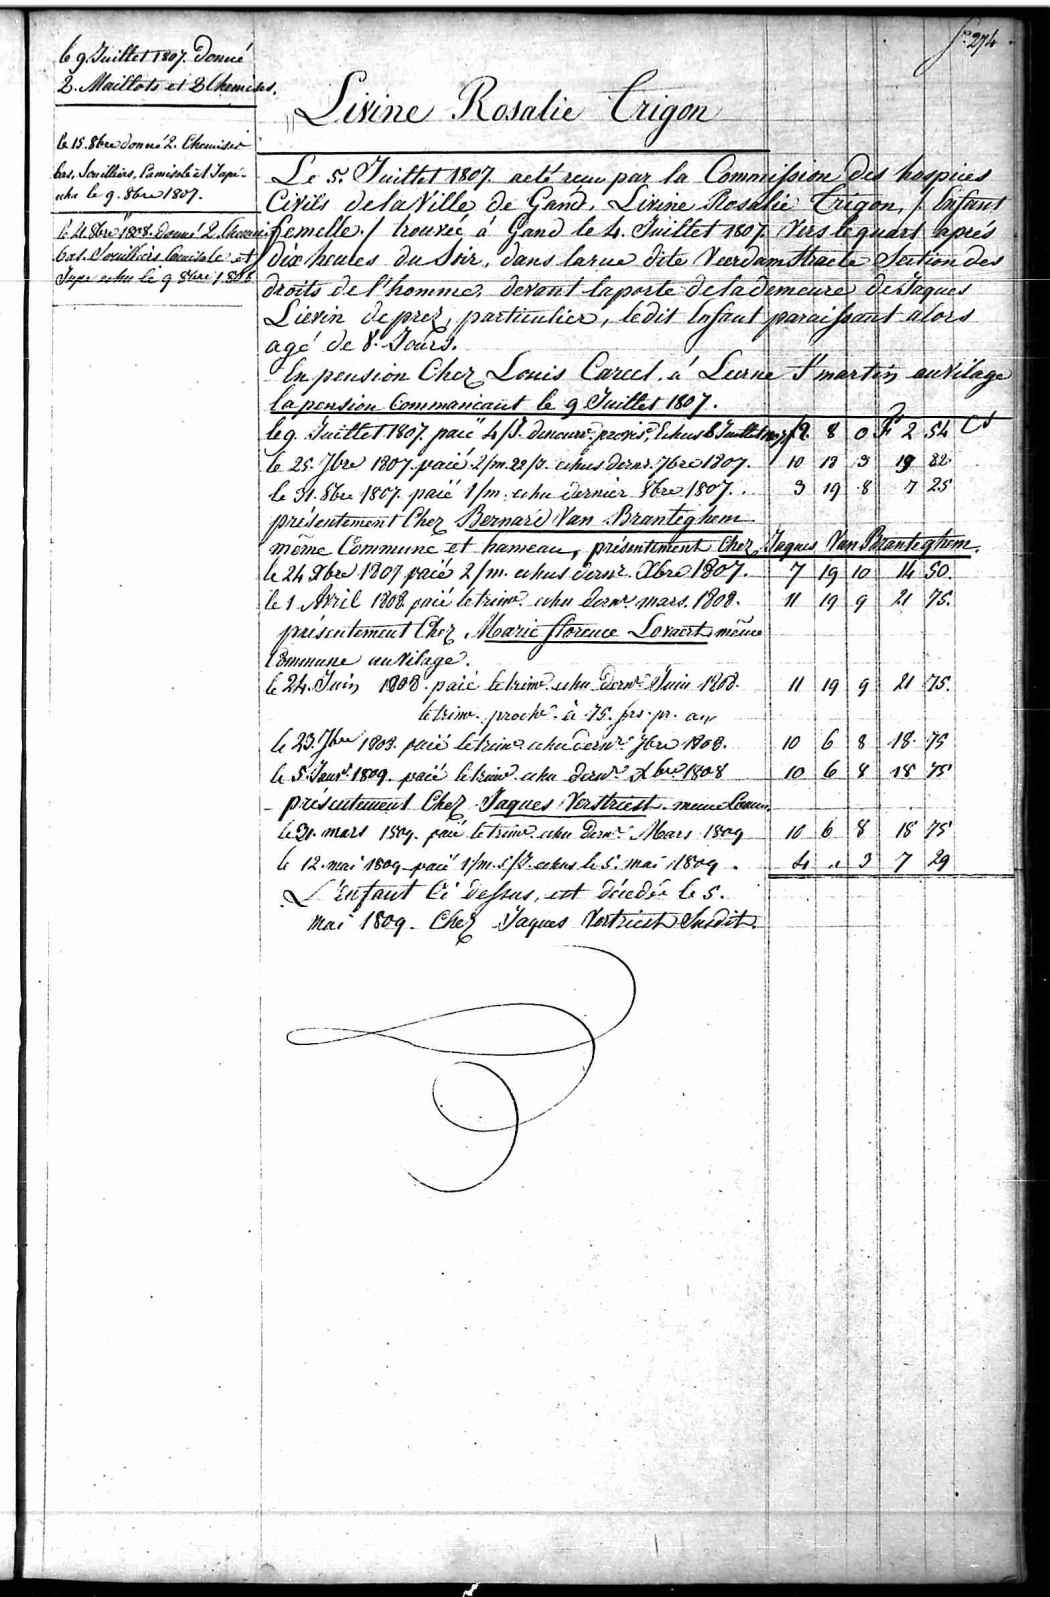 fo. 274
le 9. Juillet 1807. Donné
2. Maillots et 2 Chemises.
le 15. 8bre donné 2. Chemises
bas, Souilliers, Camisole et Jupe
echu le 9. 8bre 1807.
le 4 8bre 1808. Donné 2. Chemis
bas. Souilliers Camisole et
Jupe echu le 9 8bre 1808
Livine Rosalie Trigon
Le 5. Juillet 1807 acté reçu par la Commission des hospices
Civils de la Ville de Gand. Livine Rosalie Trigon, / Enfant
femelle / trouvée à Gand le 4. Juillet 1807 Vers le quart après
dix heures du Soir, dans la rue dite Veerdamstraete Section des
droits de l'homme, devant la porte de la demeure de Jaques
Lievin de prez, particulier, ledit Enfant paraissant alors
agé de 8. Jours.
En pension Chez Louis Carcel. à Leerne St martin au Vilage
la pension Commancant le 9 Juillet 1807.
le 9. Juillet 1807 paié 4/J. de nour. provis. Echus 8 Juillet 1807 8 0 F 2 54 Cs
le 25. 7bre 1807. paié 2/m. 22/J. echus dernr. 7bre 1807. 10 18 3 19 82
le 31. 8bre 1807. paié 1/m. echu dernier 8bre 1807. 3 19 8 7 25
présentement Chez Bernard Van Branteghem
même Commune et hameau, présentement Chez Jaques Van Branteghem.
le 24 Xbre 1807 paié 2/m. echus dernr. Xbre 1807. 7 19 10 14 50.
le 1 Avril 1808 paié le trimr. echu dernr. mars. 1808. 11 19 9 21 75.
présentement Chez Marie florence Lovaert même
Commune au Vilage.
le 24. Juin 1808. paié le trimr. echu dernr. Juin 1808. 11 19 9 21 75.
le trimr. prochn. à 75. frs. pr. an
le 23. 7bre 1808. paié le trimr. echu dernr. 7bre 1808. 10 6 8 18 75
le 5. Janvr. 1809. paié le trimr. echu dernr. Xbre 1808 10 6 8 18 75
présentement Chez Jaques Verstriest. meme Comm.
le 31. mars 1809. paié le trimr. echu dernr. Mars 1809 10 6 8 18 75
le 12. mai 1809 paié 1/m. 5/J. echus le 5. mai 1809. 4 " 3 7 29
L'Enfant Ci dessus, est décédée le 5.
mai 1809. Chez Jaques Vertriest Susdit.